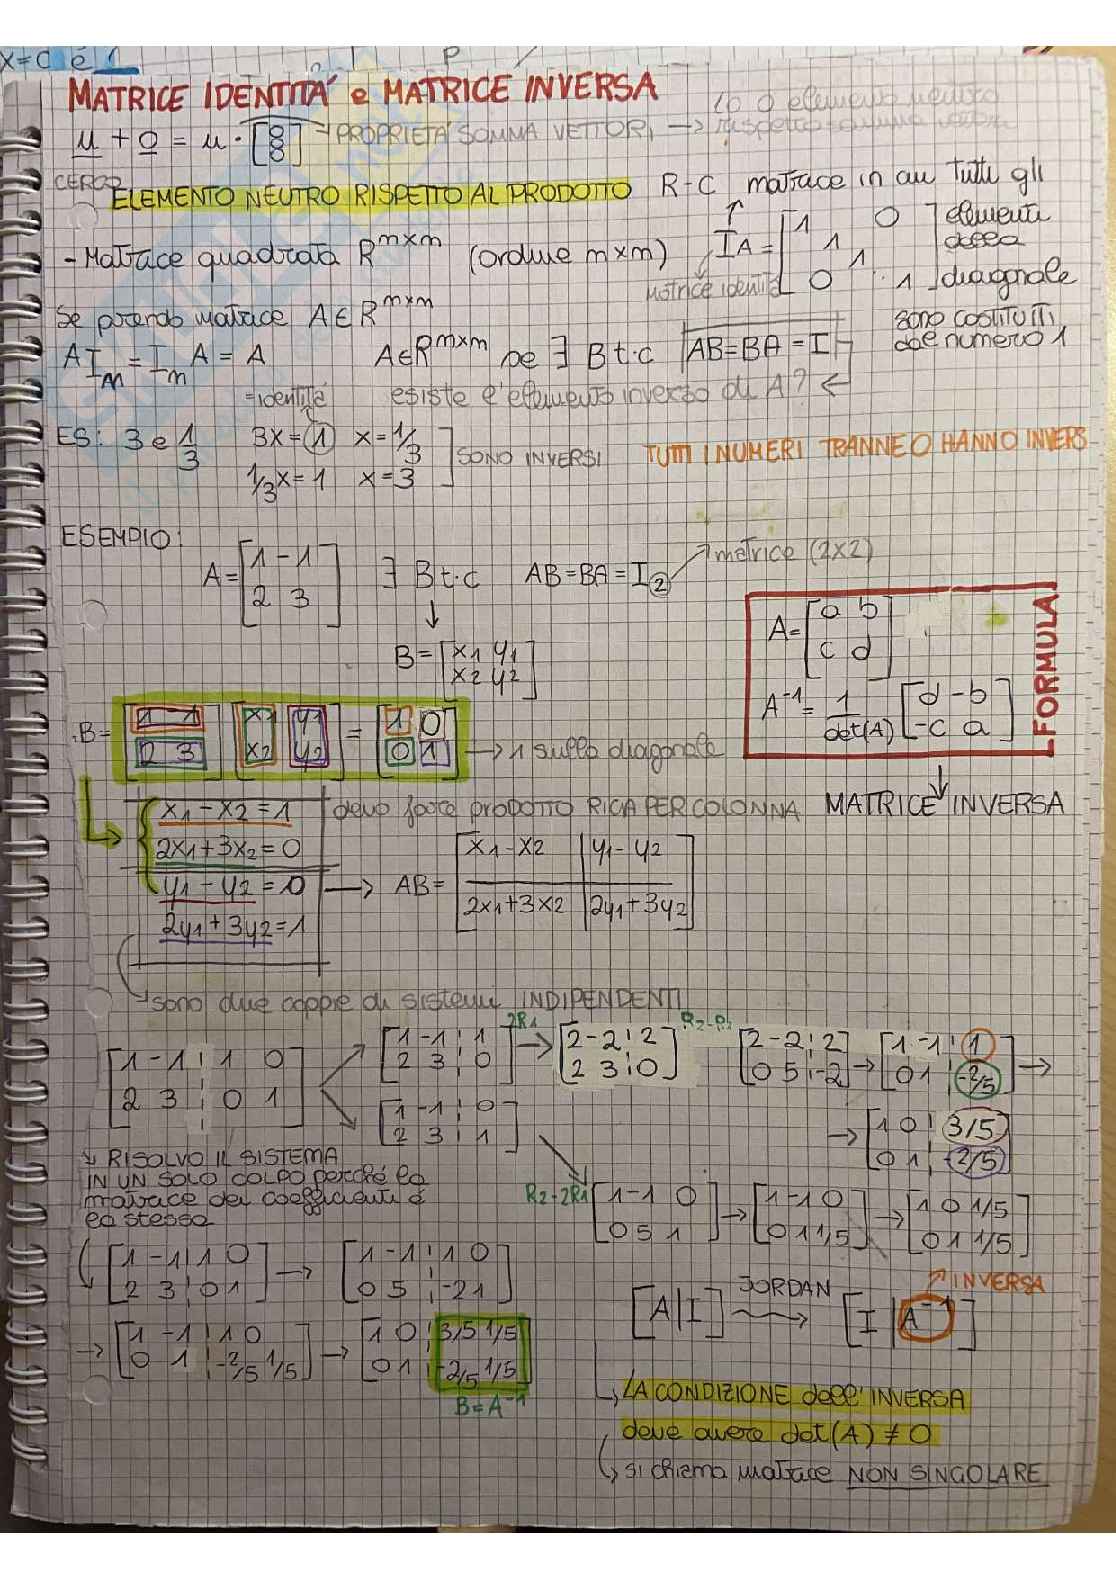 x=0 è 1
MATRICE IDENTITÁ e MATRICE INVERSA
u + 0 = u · [0 0 0] → PROPRIETÁ SOMMA VETTORI → Lo 0 elemento neutro
rispetto
CERCO
ELEMENTO NEUTRO RISPETTO AL PRODOTTO R-C matrice in cui tutti gli
- Matrice quadrata R^m×m (ordine m×m) IA = [1 1 1 0 0 1] elementi
della
diagonale
sono costituiti
dal numero 1
Matrice identità
Se prendo matrice A∈R^m×m
A I_m = I_m A = A A∈R^m×m se ∃ B t.c AB=BA=I
=identità esiste l'elemento inverso di A?
ES: 3 e 1/3 3x=1 x=1/3
1/3x=1 x=3
SONO INVERSI TUTTI I NUMERI TRANNE 0 HANNO INVERS
ESEMPIO:
A=[1 -1
2 3] ∃ B t.c AB=BA=I2 → matrice (2x2)
B=[x1 y1
x2 y2]
A=[a b
c d]
A^-1= 1/det(A) [d -b
-c a]
FORMULA
MATRICE INVERSA
.B= [1 -1
2 3] [x1 y1
x2 y2] = [1 0
0 1] → 1 sulla diagonale
x1-x2=1 devo fare prodotto RIGA PER COLONNA
2x1+3x2=0
y1-y2=0 → AB= [x1-x2 | y1-y2
2x1+3x2 | 2y1+3y2]
2y1+3y2=1
sono due coppie di sistemi INDIPENDENTI
[1 -1 ¦ 1 0
2 3 ¦ 0 1]
[1 -1 ¦ 1
2 3 ¦ 0] 2R1 → [2 -2 ¦ 2
2 3 ¦ 0] R2-R1 [2 -2 ¦ 2
0 5 ¦ -2] → [1 -1 ¦ 1
0 1 ¦ -2/5] →
→ [1 0 ¦ 3/5
0 1 ¦ -2/5]
[1 -1 ¦ 0
2 3 ¦ 1]
R2-2R1 [1 -1 0
0 5 1] → [1 -1 0
0 1 1/5] → [1 0 1/5
0 1 1/5]
RISOLVO IL SISTEMA
IN UN SOLO COLPO perché la
matrice dei coefficienti è
la stessa
[1 -1 | 1 0
2 3 ¦ 0 1] → [1 -1 ¦ 1 0
0 5 ¦ -2 1]
→ [1 -1 ¦ 1 0
0 1 ¦ -2/5 1/5] → [1 0 ¦ 3/5 1/5
0 1 ¦ -2/5 1/5]
B=A^-1
[A|I] JORDAN [I|A^-1] INVERSA
LA CONDIZIONE dell'INVERSA
deve avere det(A) ≠ 0
si chiama matrice NON SINGOLARE